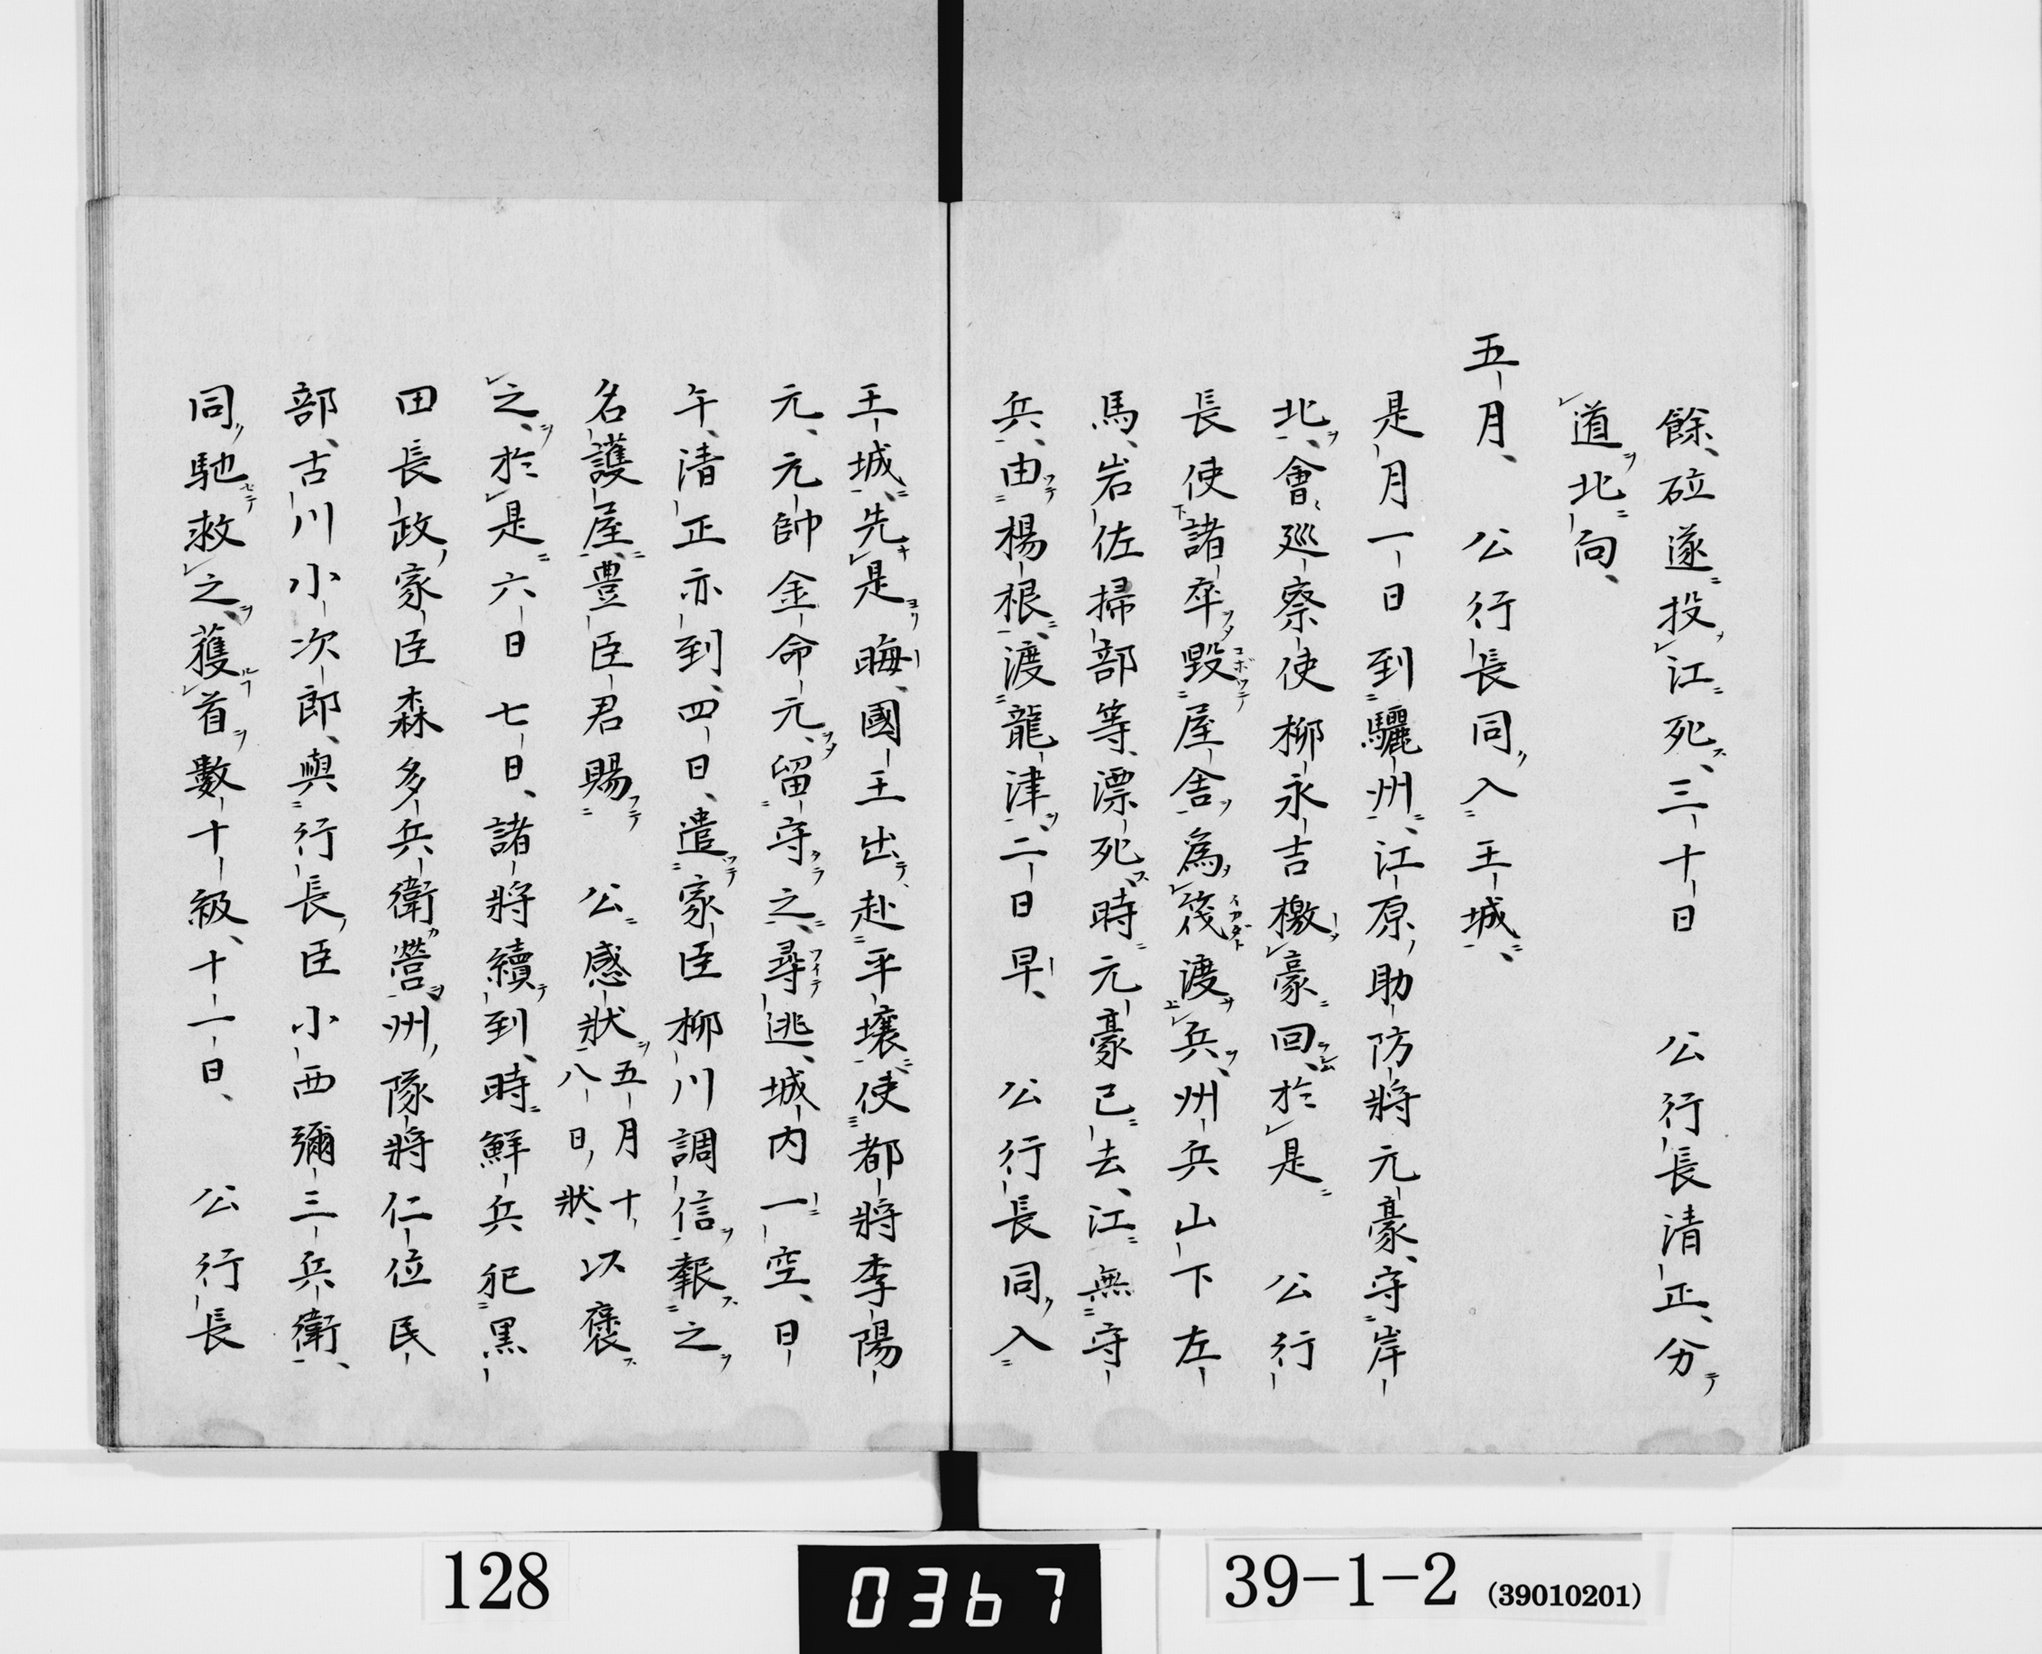 餘、砬遂投江死、三十日　公行長清正、分
道北向、
五月、　公行長同入王城、
是月一日到驪州、江原助防將元豪、守岸
北、會巡察使柳永吉檄豪回、於是　公行
長使諸卒毀屋舎為筏渡兵、州兵山下左
馬、岩佐掃部等、漂死、時元豪已去、江無守
兵、由楊根、渡龍津、二日早、　公行長同入
王城、先是晦、國王出、赴平壤、使都將李陽
元、元帥金命元、留守之、尋逃、城内一空、日
午、清正亦到、四日、遣家臣柳川調信報之
名護屋、豊臣君賜　公感狀五月十八日、狀、以襃
之、於是六日七日、諸將續到、時鮮兵犯黒
田長政、家臣森多兵衛營州、隊將仁位民
部、古川小次郎、與行長、臣小西彌三兵衛、
同馳救之、獲首數十級、十一日、　公行長
128
0367
39-1-2 (39010201)